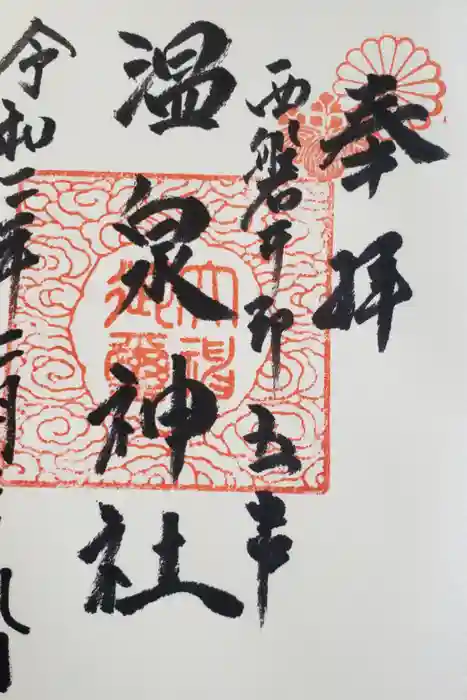 奉拝
西磐井郡五串
温泉神社
令和二年二月